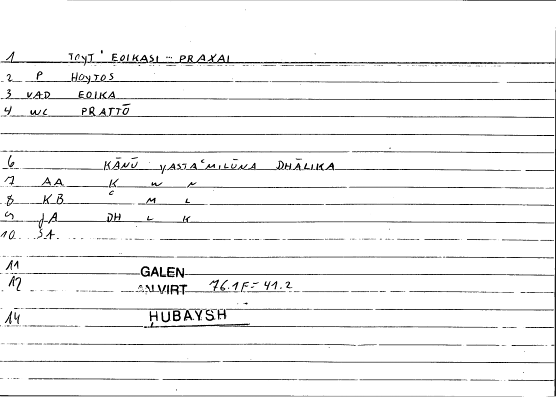 1 TOYT' EOIKASI - PRAXAI
2 P HOYTOS
3 VAD EOIKA
4 WC PRATTŌ
6 KĀNŪ YASTAʿMILŪNA DHĀLIKA
7 AA K W N
8 KB ʿ M L
9 JA DH L K
10 SA
11 GALEN
12 AN VIRT 76.1F = 41.2
14 ḤUBAYSH